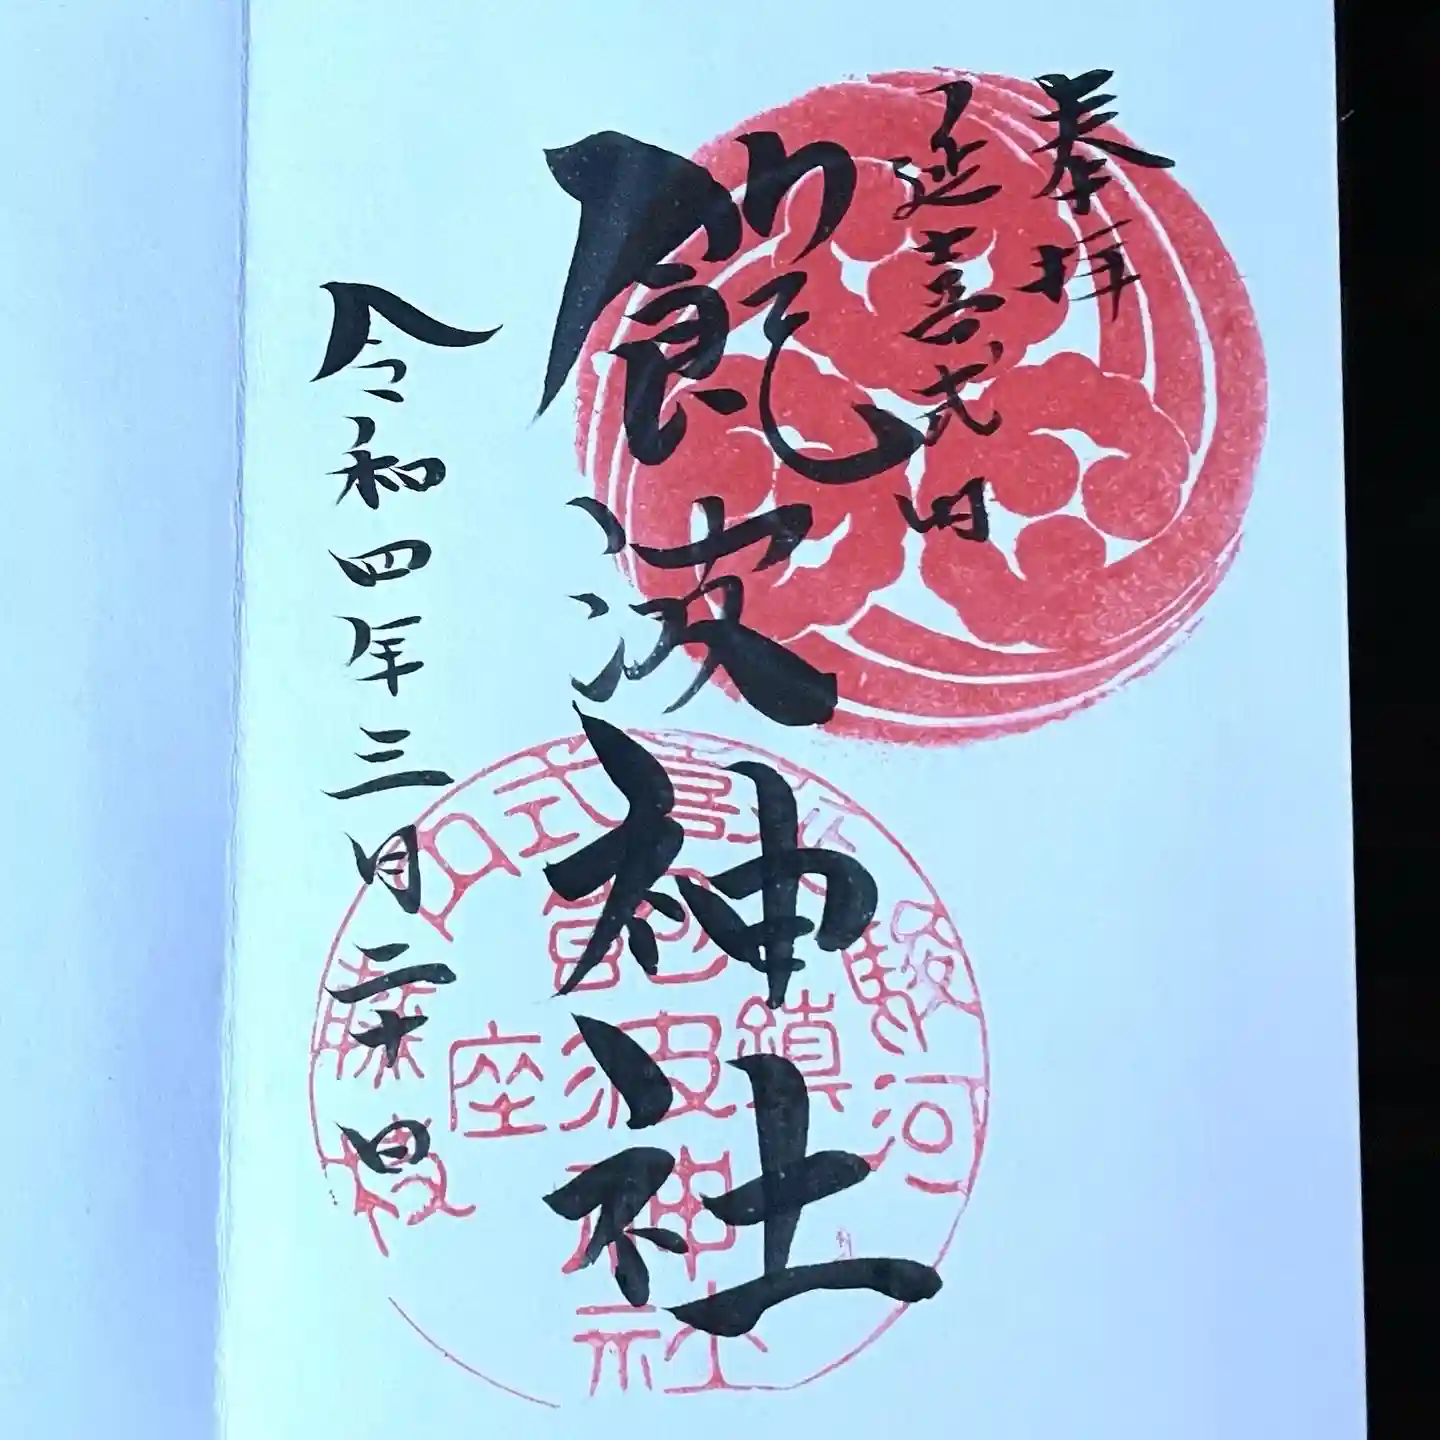 奉拝
延喜式内
飽波神社
令和四年三月二十日
駿河
延喜式内
藤枝
鎮座
飽波神社